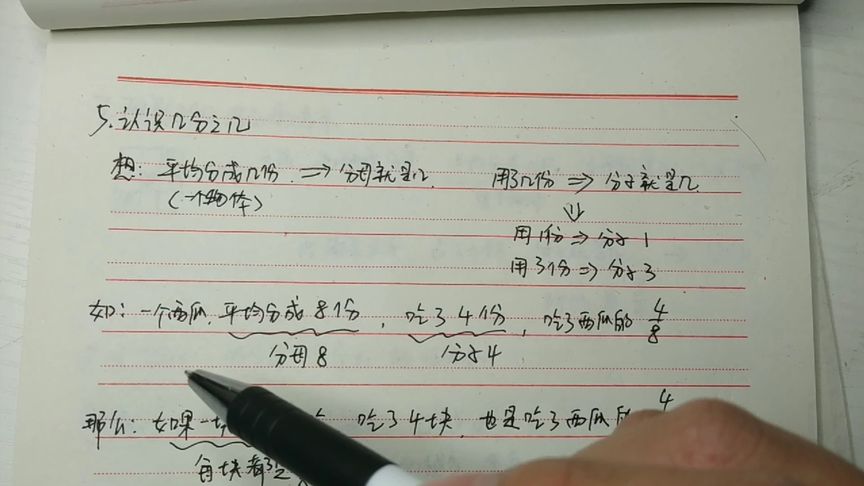 5.认识几分之几
想:平均分成几份.⇒分母就是几. 用了几份⇒分子就是几.
(一个物体) ⇓
用1份⇒分子1
用3份⇒分子3
如:一个西瓜,平均分成8份,吃了4份,吃了西瓜的4/8
分母8 分子4
那么:如果一块 吃了4块,也是吃了西瓜的4
每块都是